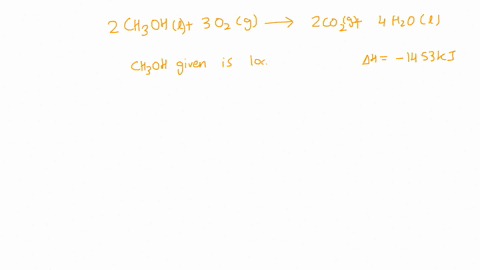 2 CH3OH(l) + 3O2(g) → 2CO2(g) + 4H2O(l)
CH3OH given is 10c. ΔH = -1453kJ